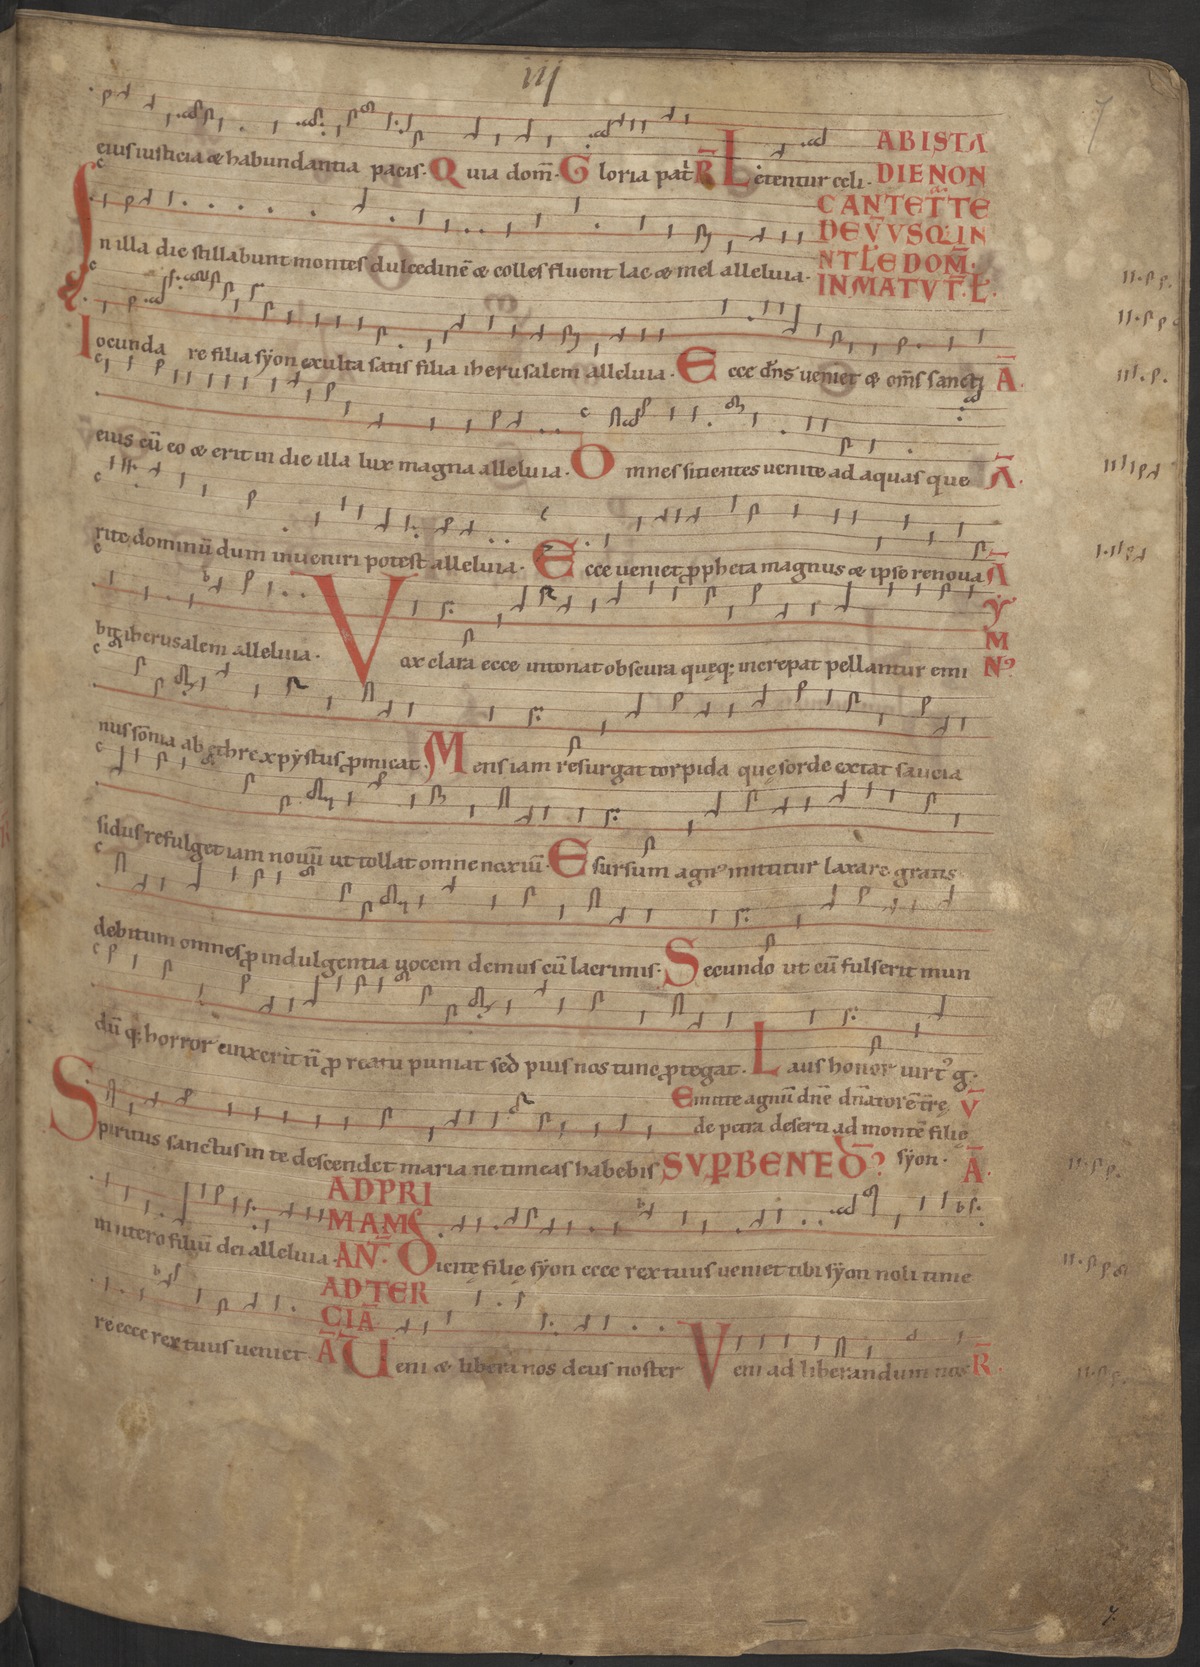 iij
7
eius iusticia & habundantia pacis. Quia dom̄. Gloria pat̄ R̄ Letentur celi. AB ISTA
DIE NON
CANTET̄ TE
DEV̄ VSQ: IN
In illa die stillabunt montes dulcedinē & colles fluent lac & mel alleluia. NT̄LE DOM̄.
IN MATVT̄. L̄.
Iocunda re filia sẏon exulta satis filia iherusalem alleluia. Ecce dn̄s ueniet & om̄s sancti Ā.
eius cū eo & erit in die illa lux magna alleluia. Omnes sitientes uenite ad aquas que Ā.
rite dominū dum inueniri potest alleluia. Ecce ueniet ꝓpheta magnus & ipse renoua Ā
Ẏ
M
bit iherusalem alleluia. Vox clara ecce intonat obscura queq; increpat pellantur emi N᷒
nus somia ab ethre xpẏstus ꝓmicat. Mens iam resurgat torpida quę sorde extat saucia
sidus refulget iam nouū ut tollat omne noxiū. E sursum agn᷒ mittitur laxare gratis
debitum omnes ꝓ indulgentia uocem demus cū lacrimis. Secundo ut cū fulserit mun
dū q; horror cinxerit n̄ ꝓ reatu puniat sed pius nos tunc ꝓtegat. Laus honor uirt᷒ g.
Emitte agnū dn̄e dn̄atorē tr̄e V̄
de petra deserti ad montē filie
Spiritus sanctus in te descendet maria ne timeas habebis SVP BENED᷒ sẏon. Ā.
AD PRI
MAM
in utero filiū dei alleluia. AN̄. Dicite filię sẏon ecce rex tuus ueniet tibi sẏon noli time
AD TER
CIĀ
re ecce rex tuus ueniet Ā Ueni & libera nos deus noster Veni ad liberandum nos R̄
7.